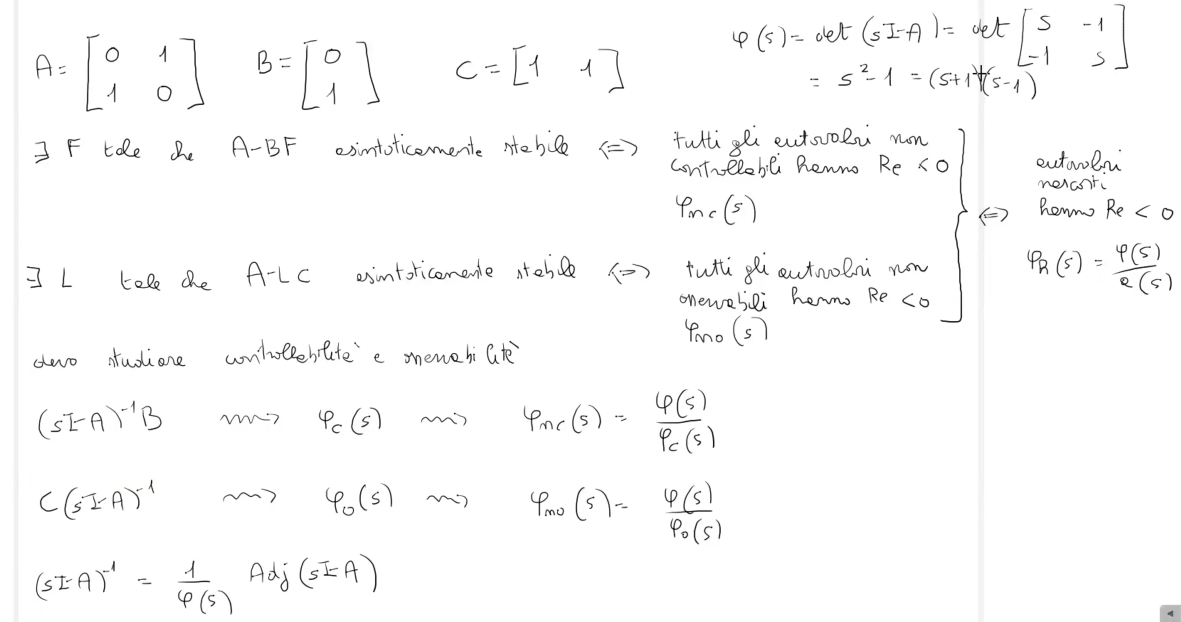 A = [0 1; 1 0] B = [0; 1] C = [1 1]
φ(s) = det (sI-A) = det [s -1; -1 s]
= s² - 1 = (s+1)(s-1)
∃ F tale che A-BF asintoticamente stabile <=> tutti gli autovalori non
controllabili hanno Re < 0
φnc(s)
∃ L tale che A-LC asintoticamente stabile <=> tutti gli autovalori non
osservabili hanno Re < 0
φno(s)
<=> autovalori
nascosti
hanno Re < 0
φR(s) = φ(s)/e(s)
devo studiare controllabilità e osservabilità
(sI-A)⁻¹B ~> φc(s) ~> φnc(s) = φ(s)/φc(s)
C(sI-A)⁻¹ ~> φo(s) ~> φno(s) = φ(s)/φo(s)
(sI-A)⁻¹ = 1/φ(s) Adj (sI-A)